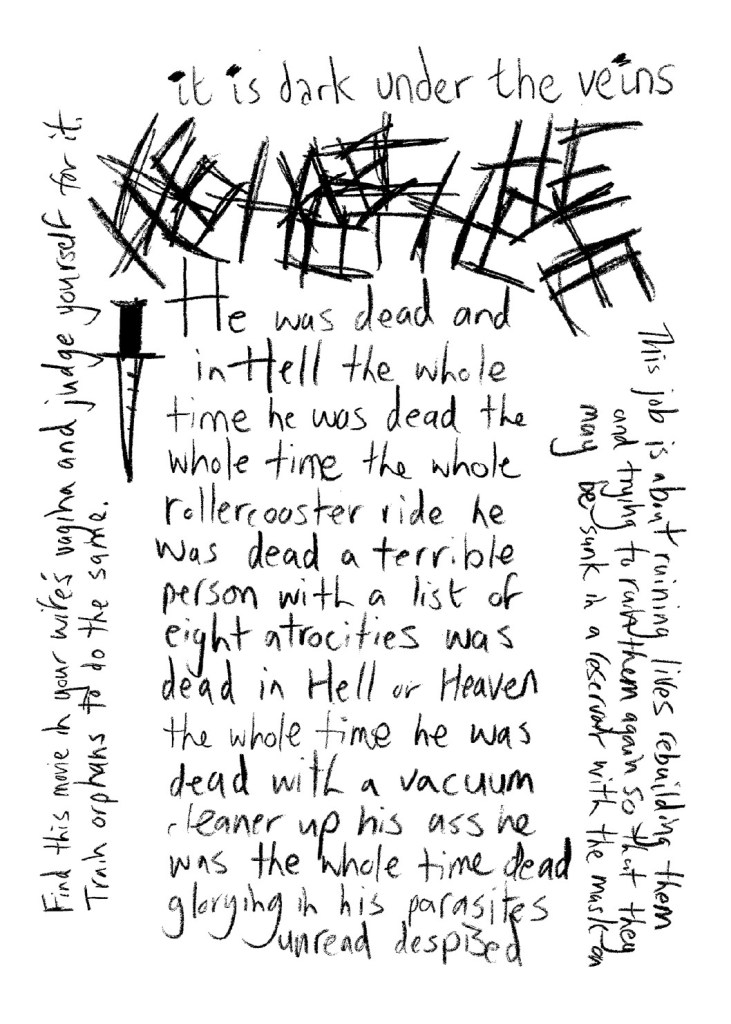 it is dark under the veins
He was dead and
in Hell the whole
time he was dead the
whole time the whole
rollercoaster ride he
was dead a terrible
person with a list of
eight atrocities was
dead in Hell or Heaven
the whole time he was
dead with a vacuum
cleaner up his ass he
was the whole time dead
glorying in his parasites
unread despized
Find this movie in your wife's vagina and judge yourself for it.
Train orphans to do the same.
This job is about ruining lives rebuilding them
and trying to ruin them again so that they
may be sunk in a reservoir with the mask on